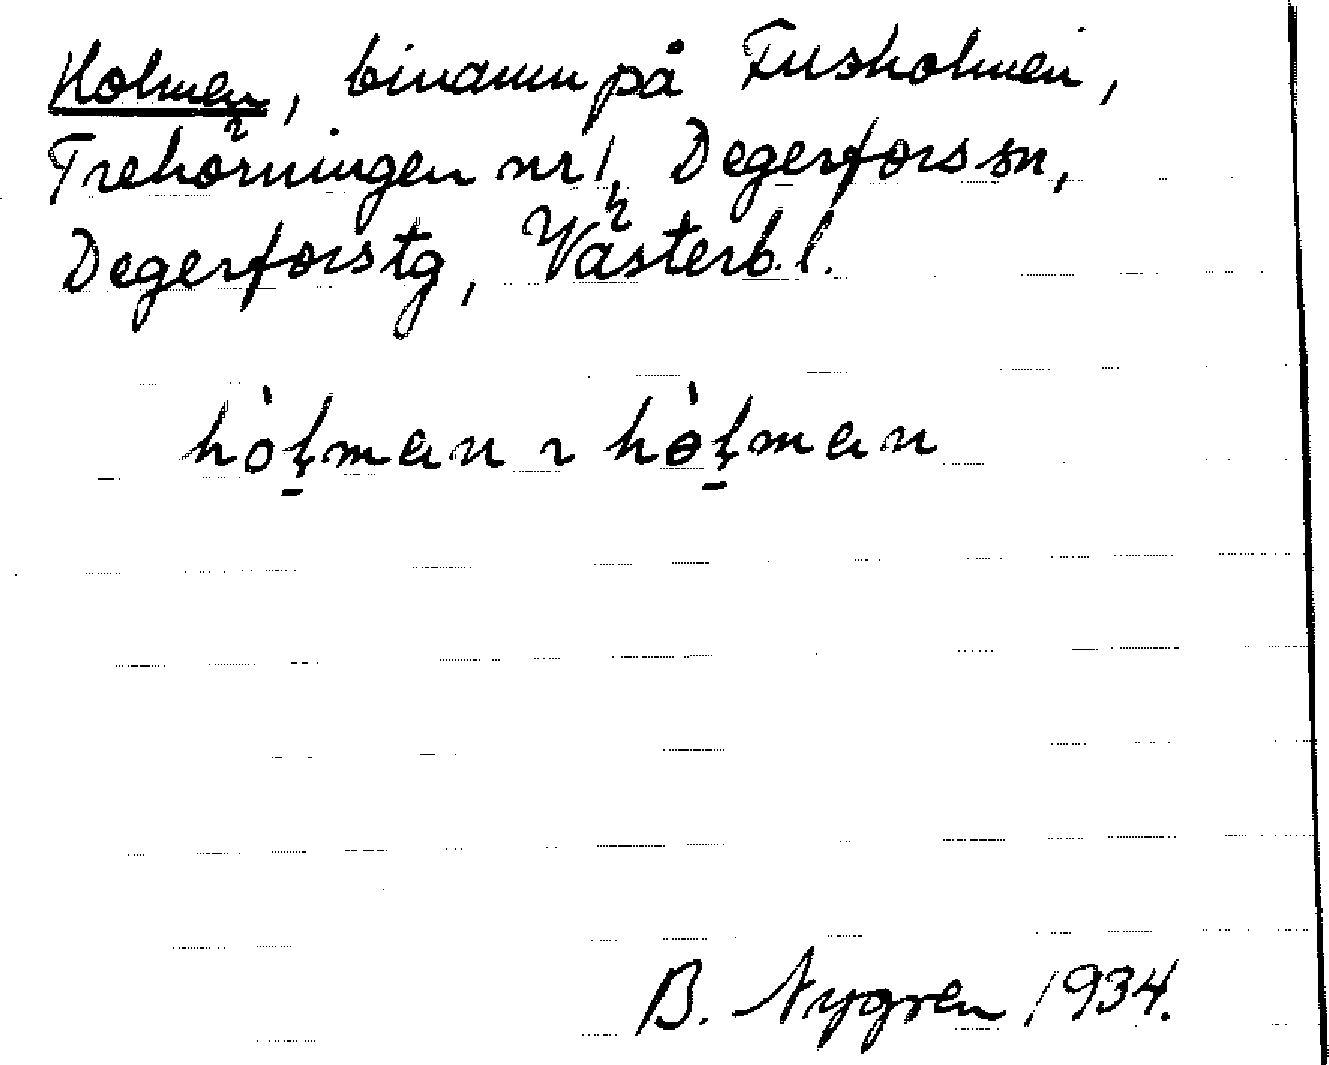 Holmen, binamn på Fusholmen,
Trehörningen nr 1, Degerfors sn,
Degerfors tg, Västerb. l.
hòl̥man ~ hòl̥man
B. Nygren 1934.